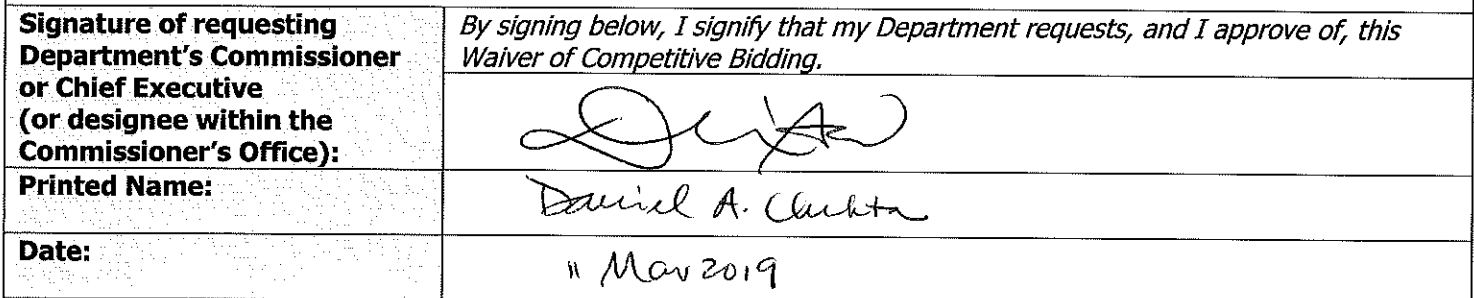 Signature of requesting
Department's Commissioner
or Chief Executive
(or designee within the
Commissioner's Office):
By signing below, I signify that my Department requests, and I approve of, this
Waiver of Competitive Bidding.
Printed Name:
Daniel A.
Date:
11 Mar 2019